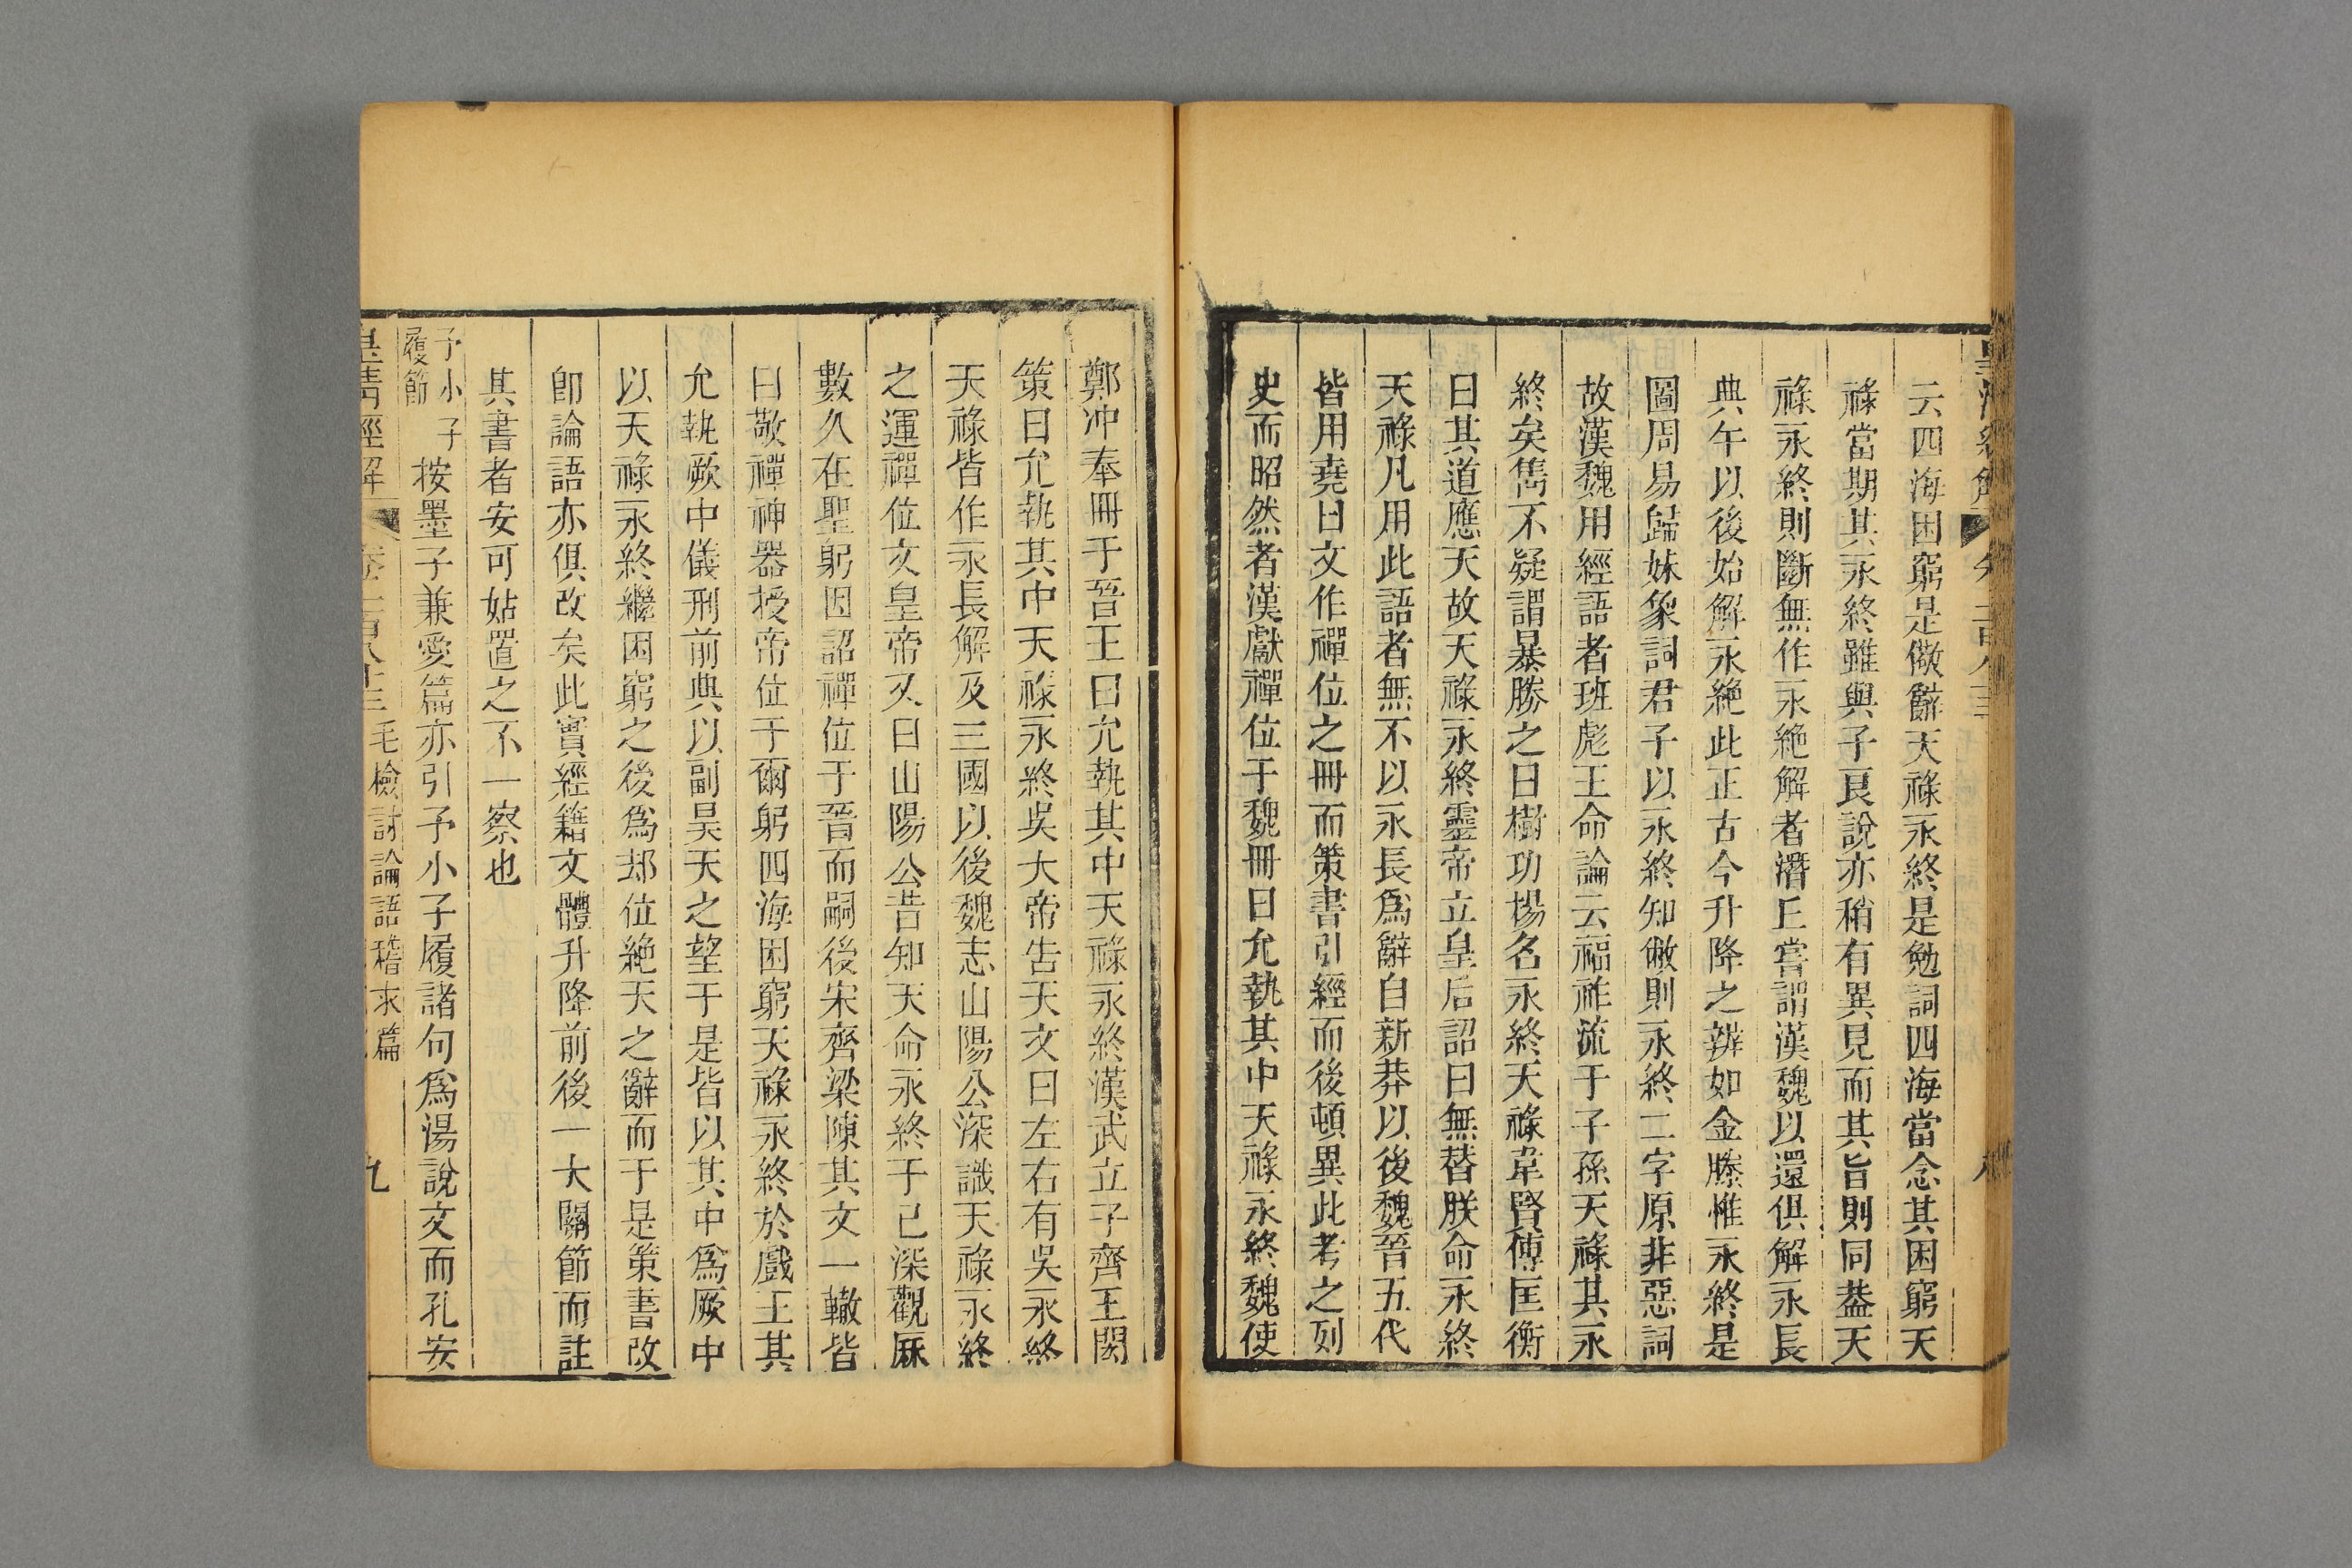 云四海困窮是儆辭天祿永終是勉詞四海當念其困窮天
祿當期其永終雖與子良說亦稍有異見而其旨則同蓋天
祿永終則斷無作永絶解者潛丘嘗謂漢魏以還俱解永長
典午以後始解永絶此正古今升降之辨如金縢惟永終是
圖周易歸妹象詞君子以永終知敝則永終二字原非惡詞
故漢魏用經語者班彪王命論云福祚流于子孫天祿其永
終矣雋不疑謂暴勝之曰樹功揚名永終天祿韋賢傳匡衡
曰其道應天故天祿永終靈帝立皇后詔曰無替朕命永終
天祿凡用此語者無不以永長爲辭自新莽以後魏晉五代
皆用堯曰文作禪位之冊而策書引經而後頓異此考之列
史而昭然者漢獻禪位于魏冊曰允執其中天祿永終魏使
鄭冲奉冊于晉王曰允執其中天祿永終漢武立子齊王閎
策曰允執其中天祿永終吳大帝告天文曰左右有吳永終
天祿皆作永長解及三國以後魏志山陽公深識天祿永終
之運禪位文皇帝又曰山陽公昔知天命永終于己深觀厤
數久在聖躬因詔禪位于晉而嗣後宋齊梁陳其文一轍皆
曰敬禪神器授帝位于爾躬四海困窮天祿永終於戲王其
允執厥中儀刑前典以副昊天之望于是皆以其中爲厥中
以天祿永終繼困窮之後爲却位絶天之辭而于是策書改
卽論語亦俱改矣此實經籍文體升降前後一大關節而註
其書者安可姑置之不一察也
予小子
履節
按墨子兼愛篇亦引予小子履諸句爲湯說文而孔安
皇淸經解
卷一百八十三
毛檢討論語稽求篇
九